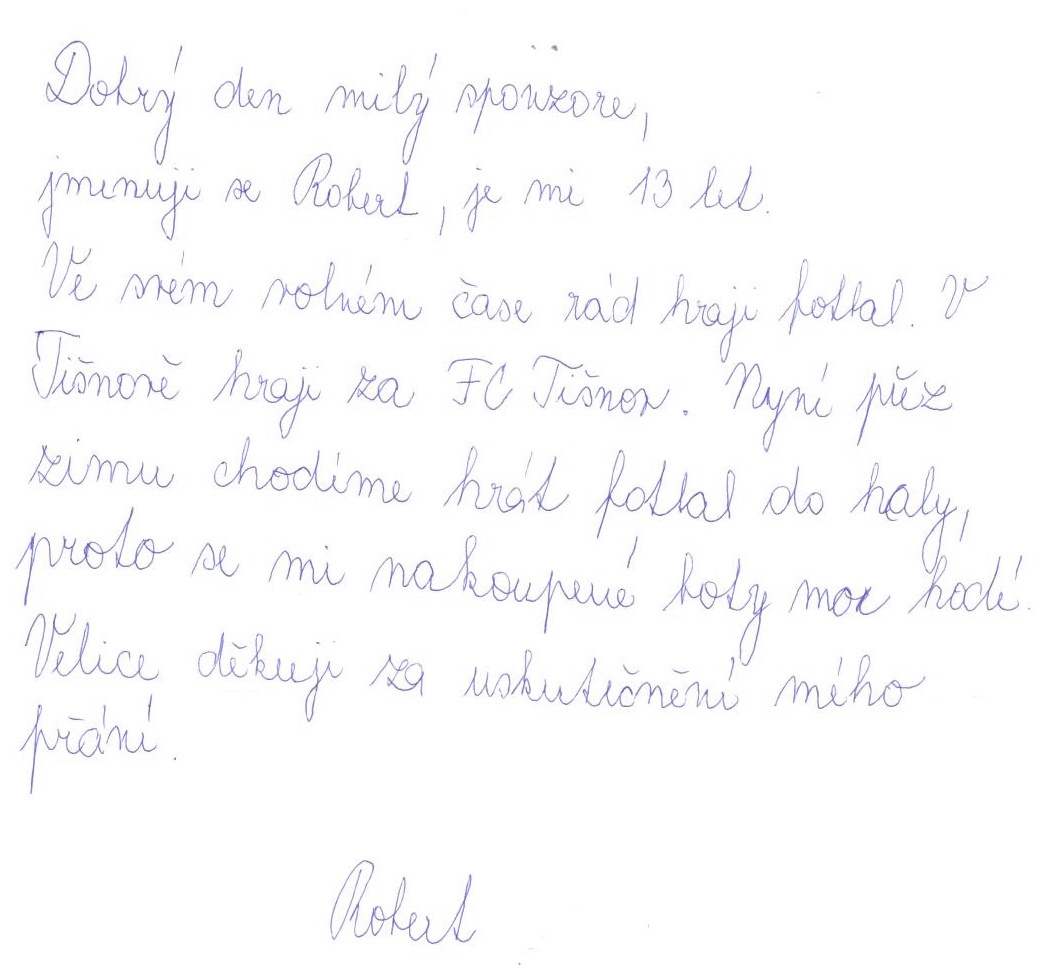 Dobrý den milý sponzore,
jmenuji se Robert, je mi 13 let.
Ve svém volném čase rád hraji fotbal. V
Tišnově hraji za FC Tišnov. Nyní přez
zimu chodíme hrát fotbal do haly,
proto se mi nakoupené boty moc hodí.
Velice děkuji za uskutečnění mého
přání.
Robert